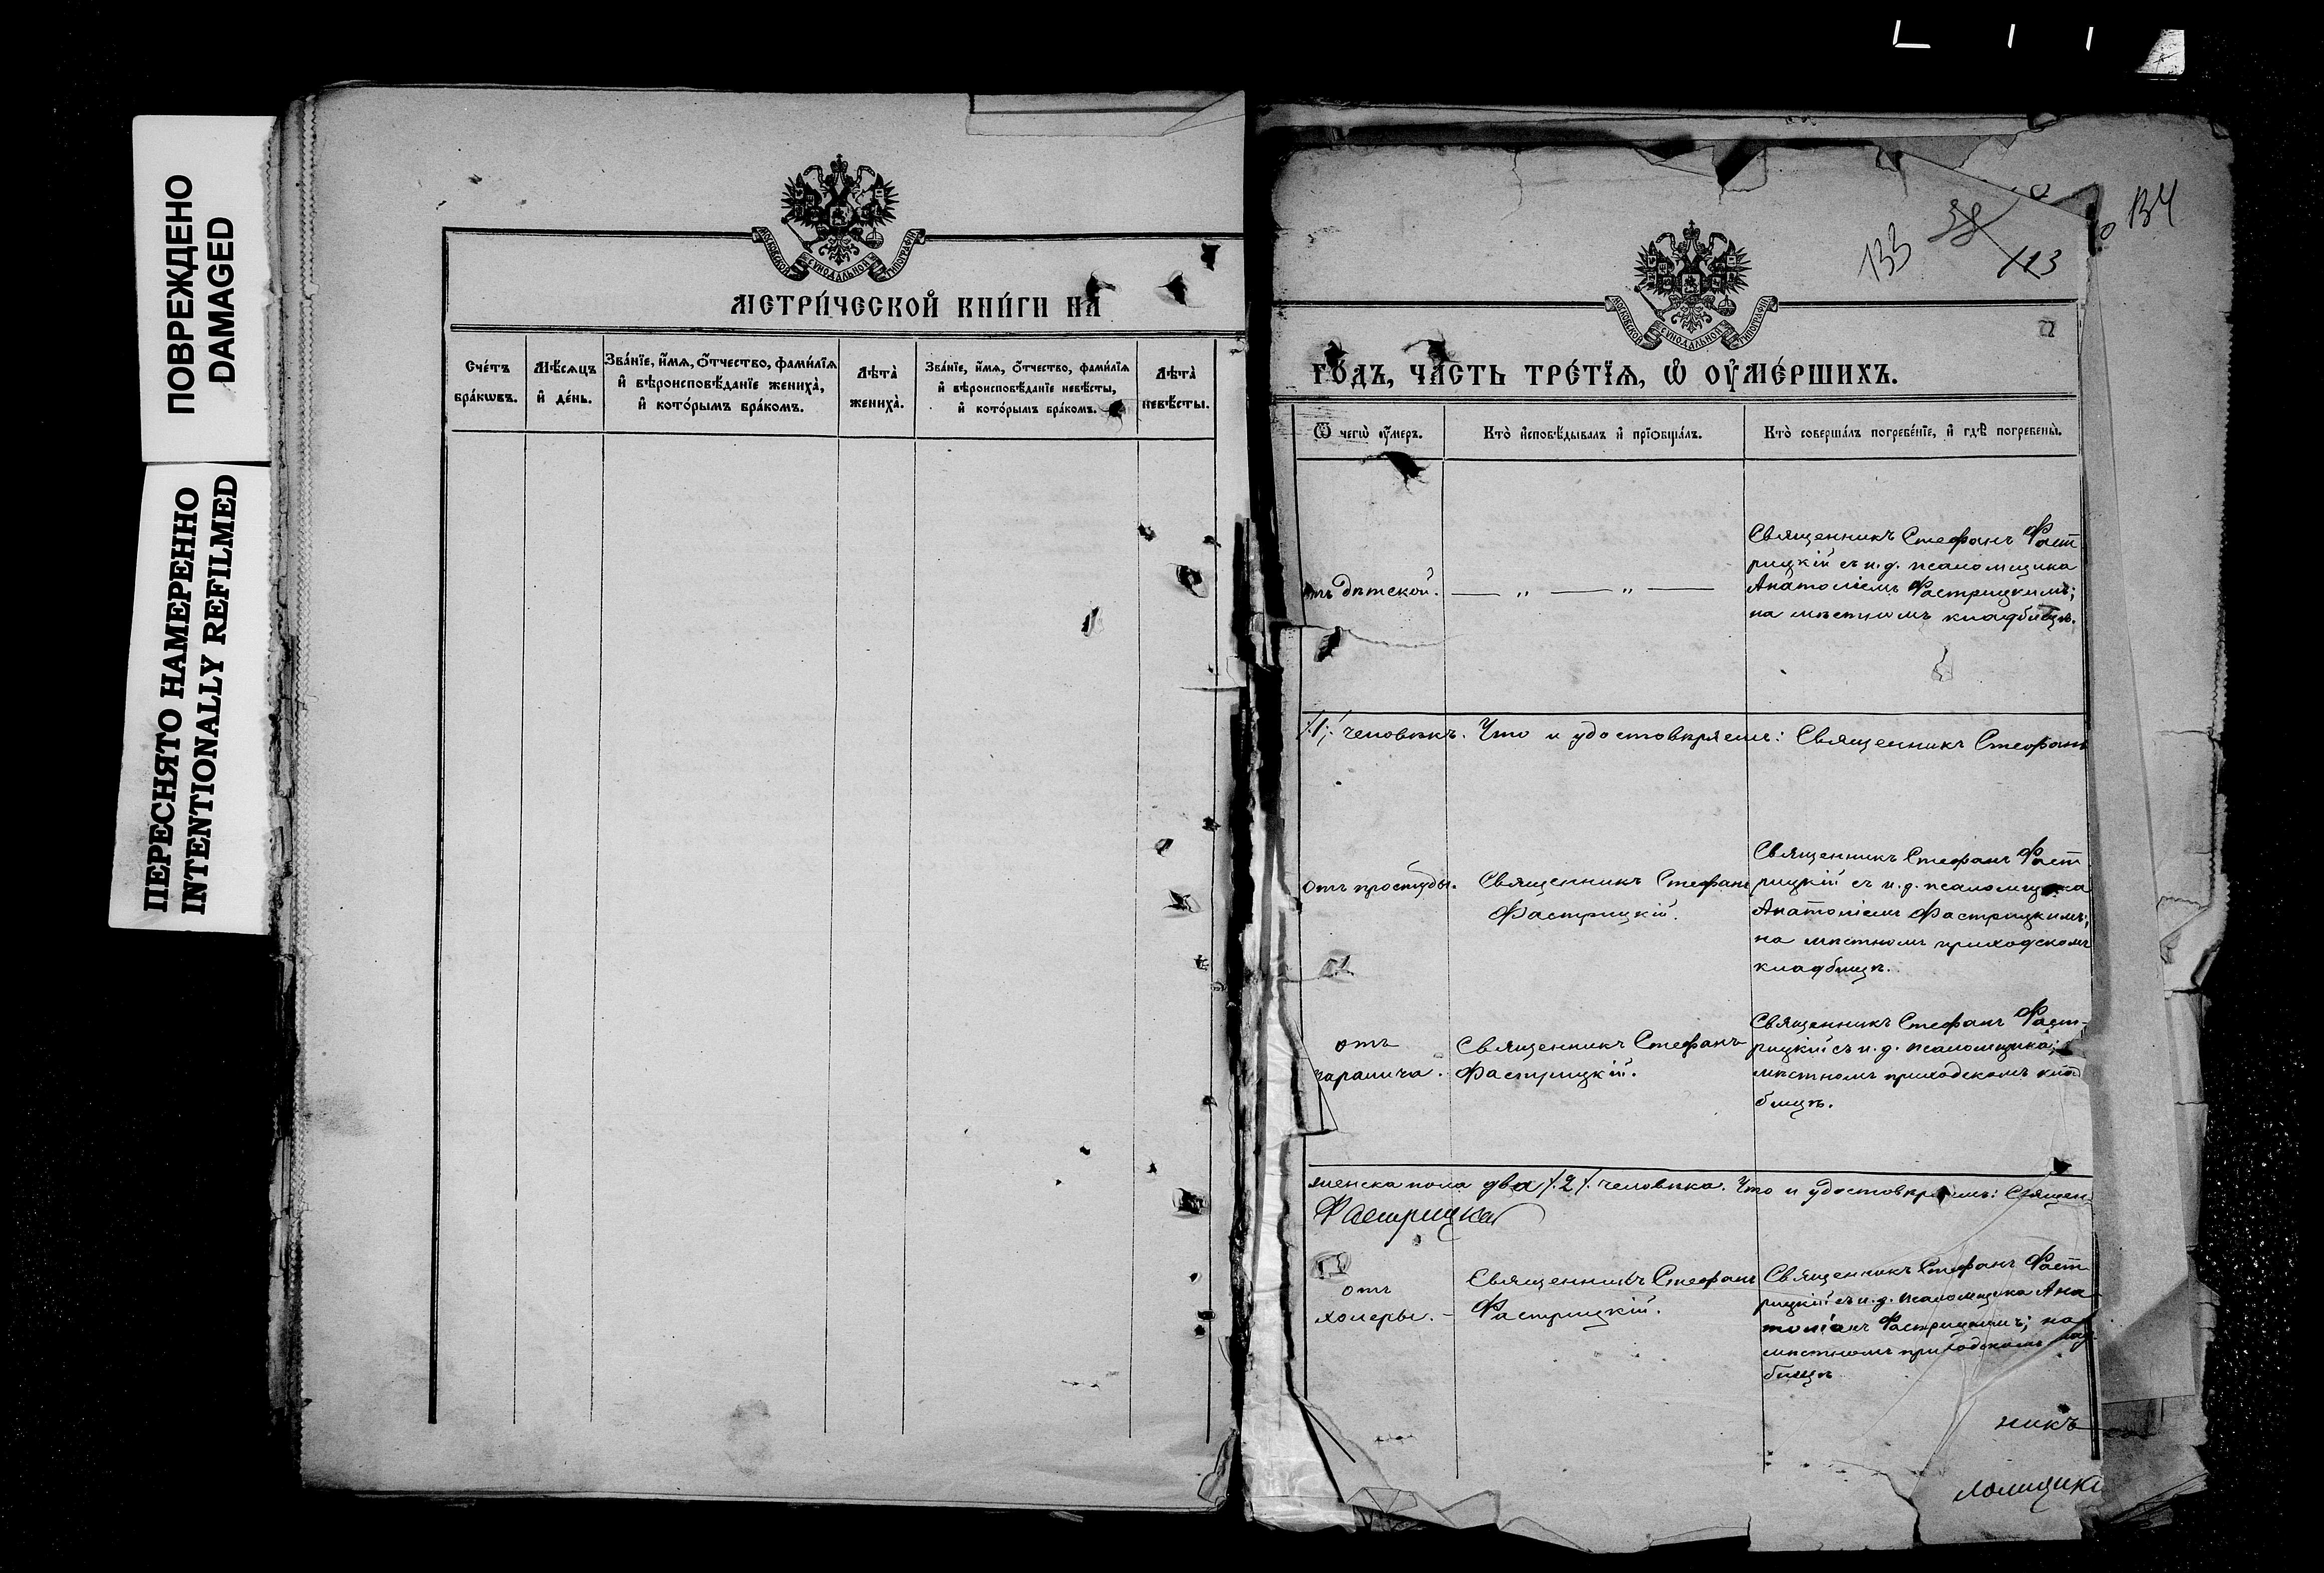 ПОВРЕЖДЕНО
DAMAGED
ПЕРЕСНЯТО НАМЕРЕННО
INTENTIONALLY REFILMED
МОСКОВСКОЙ СѴНОДАЛЬНОЙ ТИПОГРАФІИ
МЕТРИ́ЧЕСКОЙ КНИ́ГИ НА
Сче́тъ бра́кωвъ.
Мѣ́сяцъ и де́нь.
Зва́нїе, и́мя, ѻ҆́тчество, фами́лїя и вѣроисповѣ́данїе жениха̀, и кото́рымъ бра́комъ.
Лѣта̀ жениха̀.
Зва́нїе, и́мя, ѻ҆́тчество, фами́лїя и вѣроисповѣ́данїе невѣ́сты, и кото́рымъ бра́комъ.
Лѣта̀ невѣ́сты.
133
38
123
134
МОСКОВСКОЙ СѴНОДАЛЬНОЙ ТИПОГРАФІИ
ГО́ДЪ, ЧА́СТЬ ТРЕ́ТЇЯ, Ѽ ОУ҆МЕ́РШИХЪ.
Ѿ чегѡ̀ оу҆́меръ.
Кто̀ и҆сповѣ́дывалъ и҆ прїѻбща́лъ.
Кто̀ соверша́лъ погребе́нїе, и҆ гдѣ̀ погребены̀.
отъ дѣтской.
— „ — „ —
Священникъ Стефанъ Фаст
рицкій съ и. д. псаломщика
Анатоліемъ Фастрицкимъ;
на мѣстномъ кладбищѣ.
/.1./ человѣкъ. Что и удостовѣряемъ: Священникъ Стефанъ
отъ простуды.
Священникъ Стефанъ
Фастрицкій.
Священникъ Стефанъ Фаст
рицкій съ и. д. псаломщика
Анатоліемъ Фастрицкимъ;
на мѣстномъ приходскомъ
кладбищѣ.
отъ
паралича.
Священникъ Стефанъ
Фастрицкій.
Священникъ Стефанъ Фаст-
рицкій съ и. д. псаломщика;
мѣстномъ приходскомъ клад
бищѣ.
женска пола два /.2./ человѣка. Что и удостовѣряемъ: Священ
Фастрицка
отъ
холеры. -
Священникъ Стефанъ
Фастрицкій.
Священникъ Стефанъ Фаст
рицкій съ и. д. псаломщика Ана
толіемъ Фастрицкимъ; на
мѣстномъ приходскомъ клад
бищѣ
никъ
ломщика